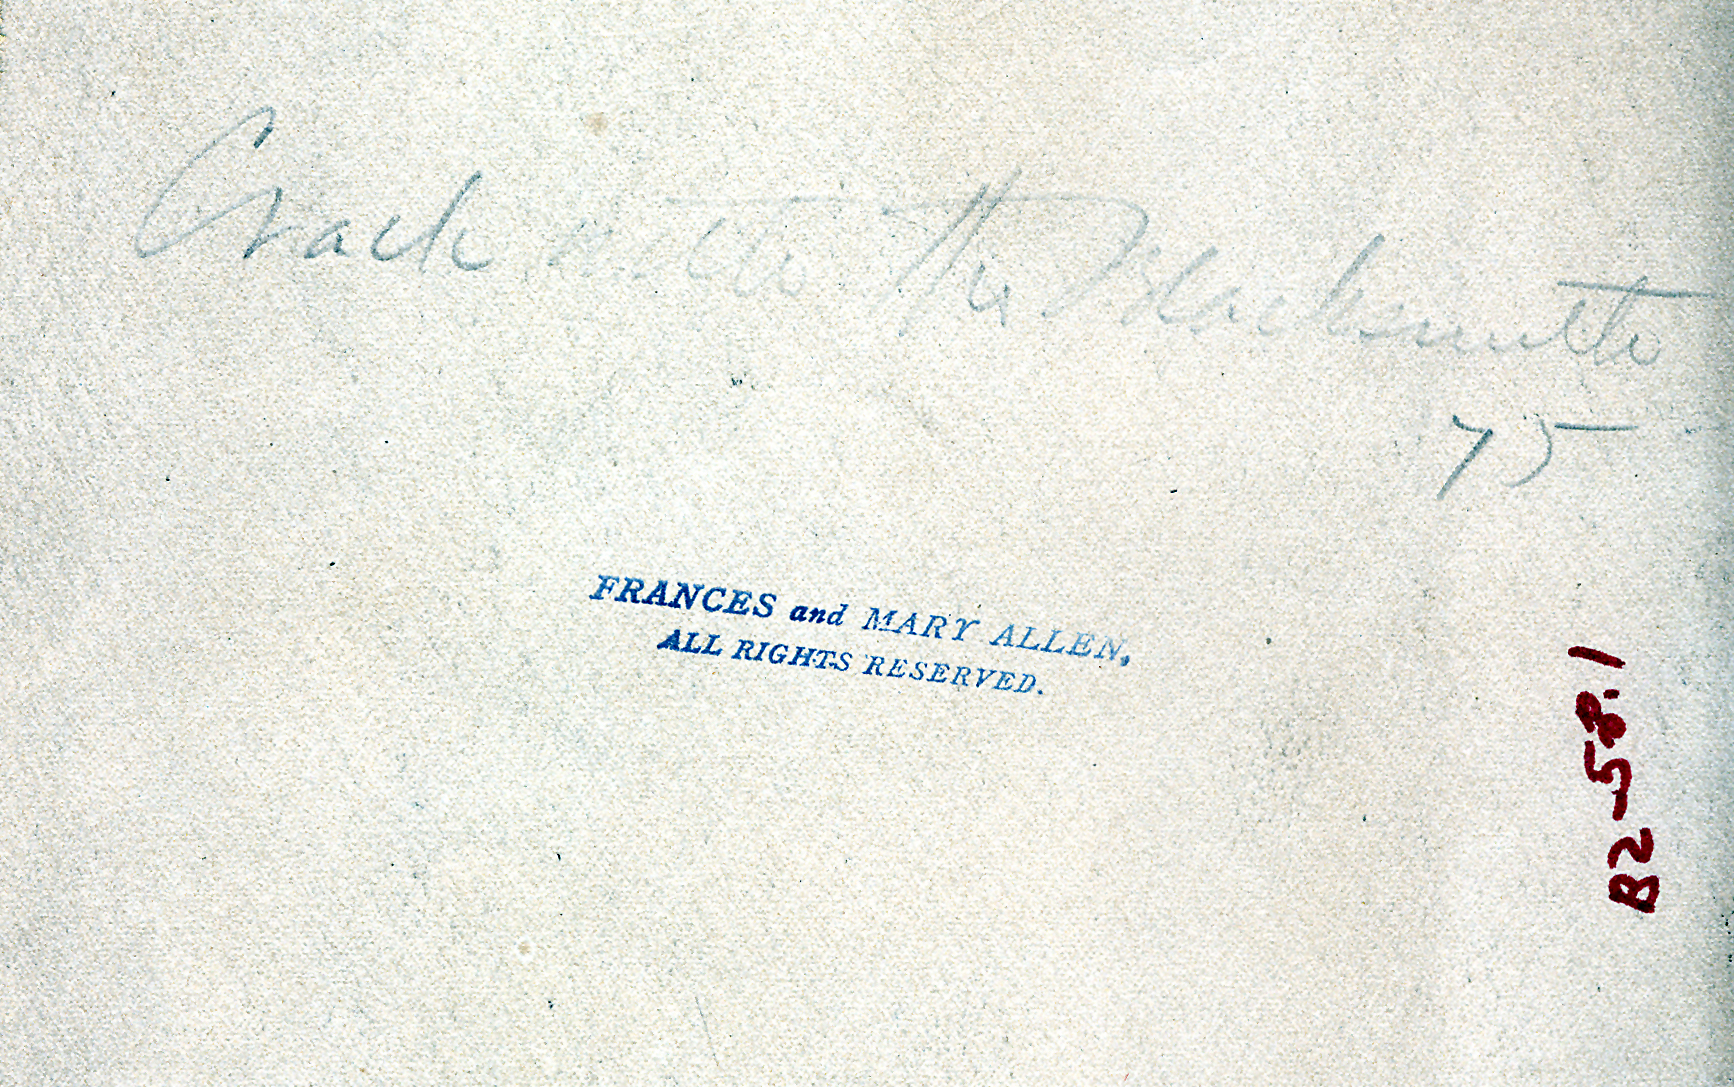 Crack with the Blacksmith
75
FRANCES and MARY ALLEN,
ALL RIGHTS RESERVED.
B2-58.1